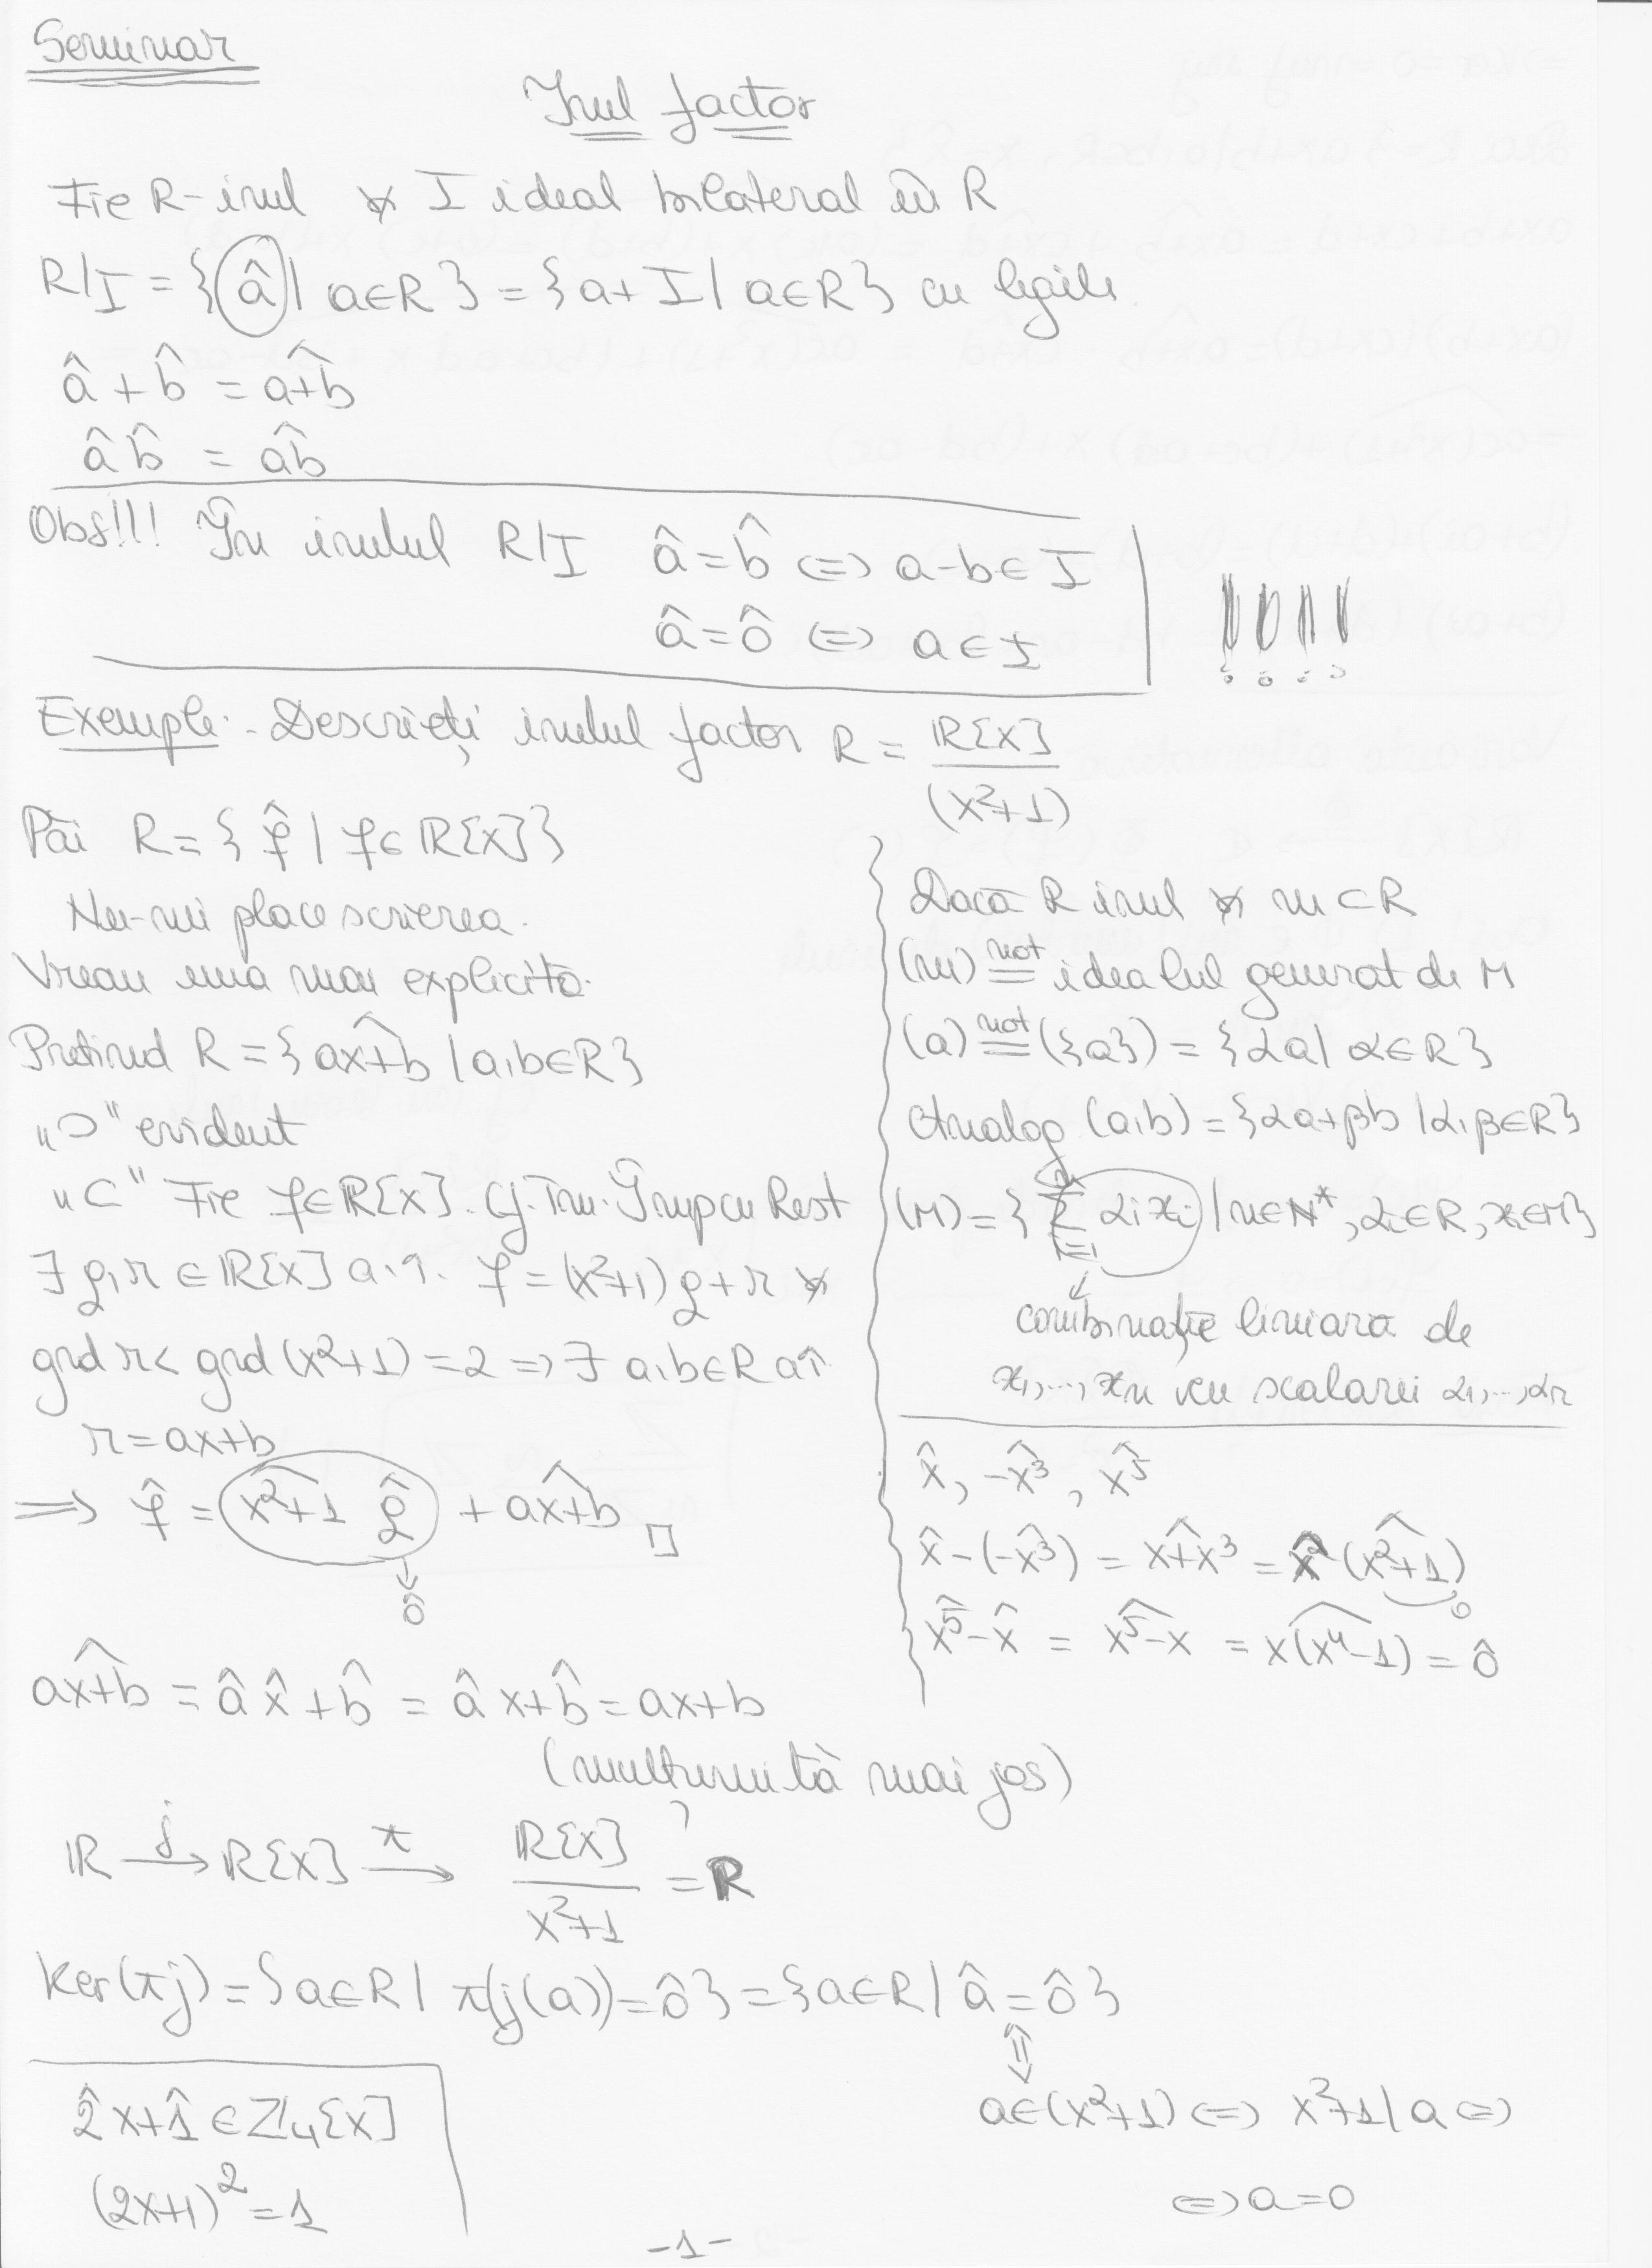 Seminar
Inel factor
Fie R-inel și I ideal bilateral în R
R/I = {â | a∈R} = {a+I | a∈R} cu legile
â + b̂ = \widehat{a+b}
â b̂ = \widehat{ab}
Obs!!! În inelul R/I â = b̂ ⇔ a-b ∈ I
â = 0̂ ⇔ a ∈ I
!!!!
Exemple: - Descrieți inelul factor R = ℝ[X]/(x²+1)
Păi R = { f̂ | f∈ℝ[X]}
Nu-mi place scrierea.
Vreau una mai explicită.
Pretind R = { \widehat{ax+b} | a,b∈R}
„⊃" evident
„⊂" Fie f∈ℝ[X]. Cf. Tm. Împ cu Rest
∃ g,r ∈ ℝ[X] a.î. f = (x²+1) g + r și
grd r < grd (x²+1) = 2 => ∃ a,b∈R aî
r = ax+b
=> f̂ = \widehat{x²+1} ĝ + \widehat{ax+b} □
↓
0̂
\widehat{ax+b} = â x̂ + b̂ = â x + b̂ = ax+b
(mulțumită mai jos)
Dacă R inel și m ⊂ R
(m) \overset{not}{=} idealul generat de M
(a) \overset{not}{=} ({a}) = {αa | α∈R}
Analog (a,b) = {αa+βb | α,β∈R}
(M) = { \sum_{i=1}^{n} αᵢxᵢ | n∈N*, αᵢ∈R, xᵢ∈M}
↓
combinație liniară de
x₁,..., xₙ cu scalarii α₁,...,αₙ
x̂, \widehat{-x³}, \widehat{x⁵}
x̂ - (\widehat{-x³}) = \widehat{x+x³} = x \widehat{(x²+1)}
0
\widehat{x⁵} - x̂ = \widehat{x⁵-x} = \widehat{x(x⁴-1)} = 0̂
ℝ \overset{j}{→} ℝ[X] \overset{π}{→} ℝ[X]/x²+1 = R
Ker(πj) = {a∈R | π(j(a)) = 0̂} = {a∈R | â = 0̂}
⇕
a∈(x²+1) ⇔ x²+1 | a ⇔
⇔ a=0
2̂x+1̂ ∈ ℤ₄[X]
(2x+1)² = 1
-1-